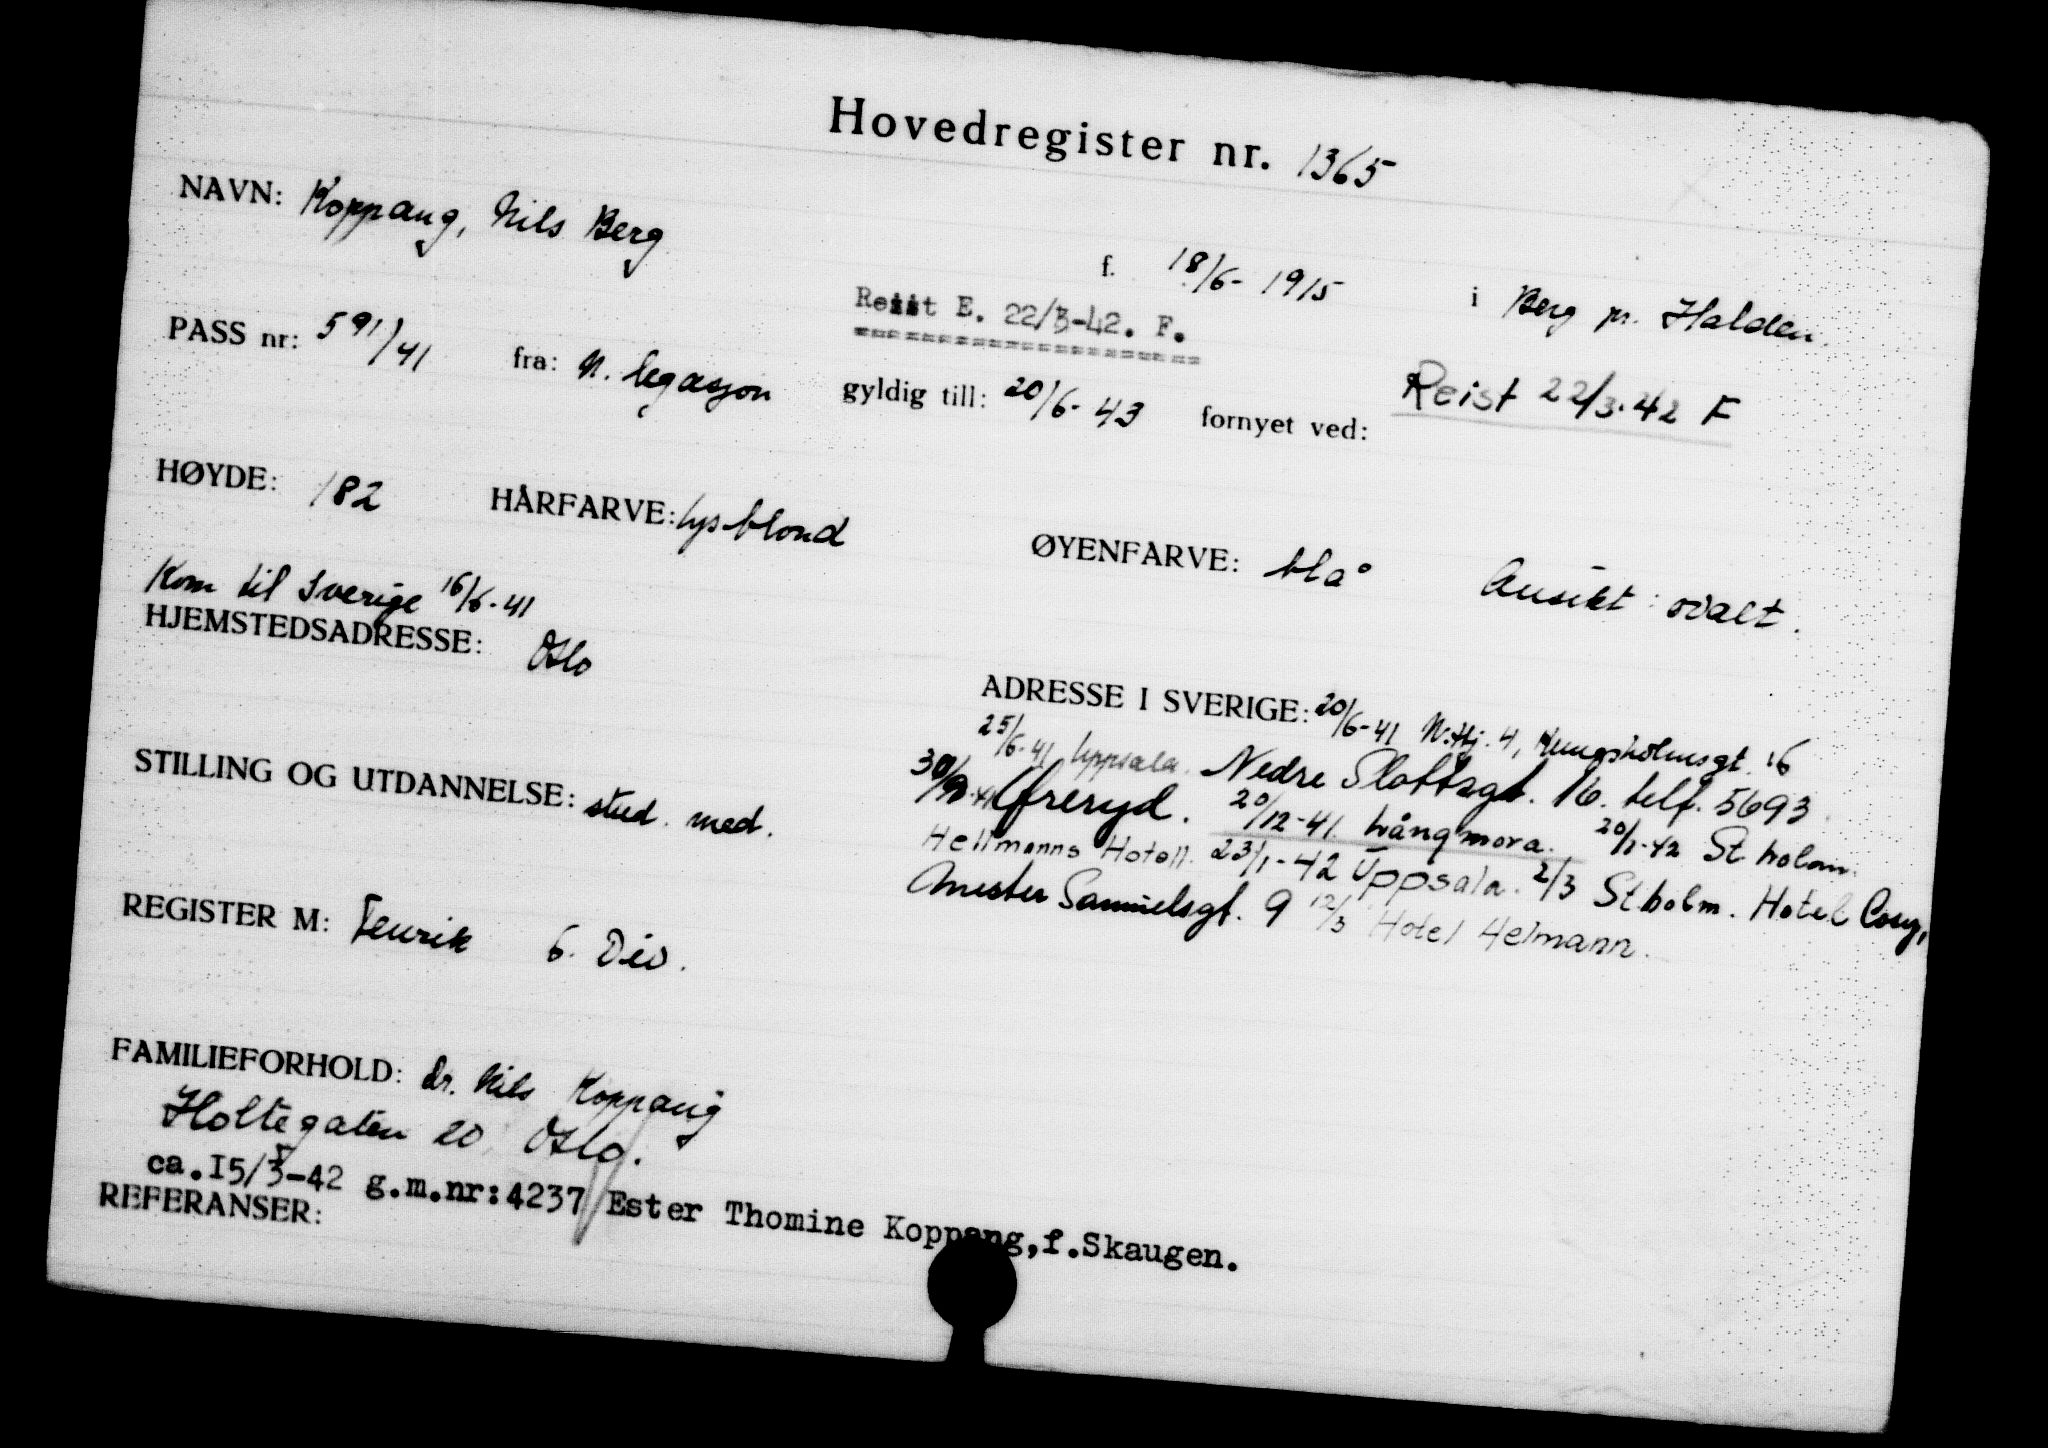 Hovedregister nr. 1365
NAVN: Koppang, Nils Berg f. 18/6-1915 i Berg pr. Halden.
Reist E. 22/3-42. F.
PASS nr: 591/41 fra: N. legasjon gyldig till: 20/6-43 fornyet ved: Reist 22/3.42 F
HØYDE: 182 HÅRFARVE: lys blond ØYENFARVE: blå Ansikt: ovalt.
Kom til Sverige 16/6-41
HJEMSTEDSADRESSE: Oslo
ADRESSE I SVERIGE: 20/6-41 N.Hj. 4, Kungsholmsgt. 16
25/6-41 Uppsala. Nedre Slottsgt. 16. telf. 5693
STILLING OG UTDANNELSE: stud. med.
Öreryd. 20/12-41. Långmora. 20/1-42 St.holm.
Hellmanns Hotell. 23/1-42 Uppsala. 2/3 St.holm. Hotel Cosy,
Mester Samuelsgt. 9 12/3 Hotel Helmann.
REGISTER M: Fenrik 6. Div.
FAMILIEFORHOLD: dr. Nils Koppang
Holtegaten 20, Oslo.
ca.15/3-42 g.m.nr:4237/Ester Thomine Koppang,f.Skaugen.
REFERANSER: